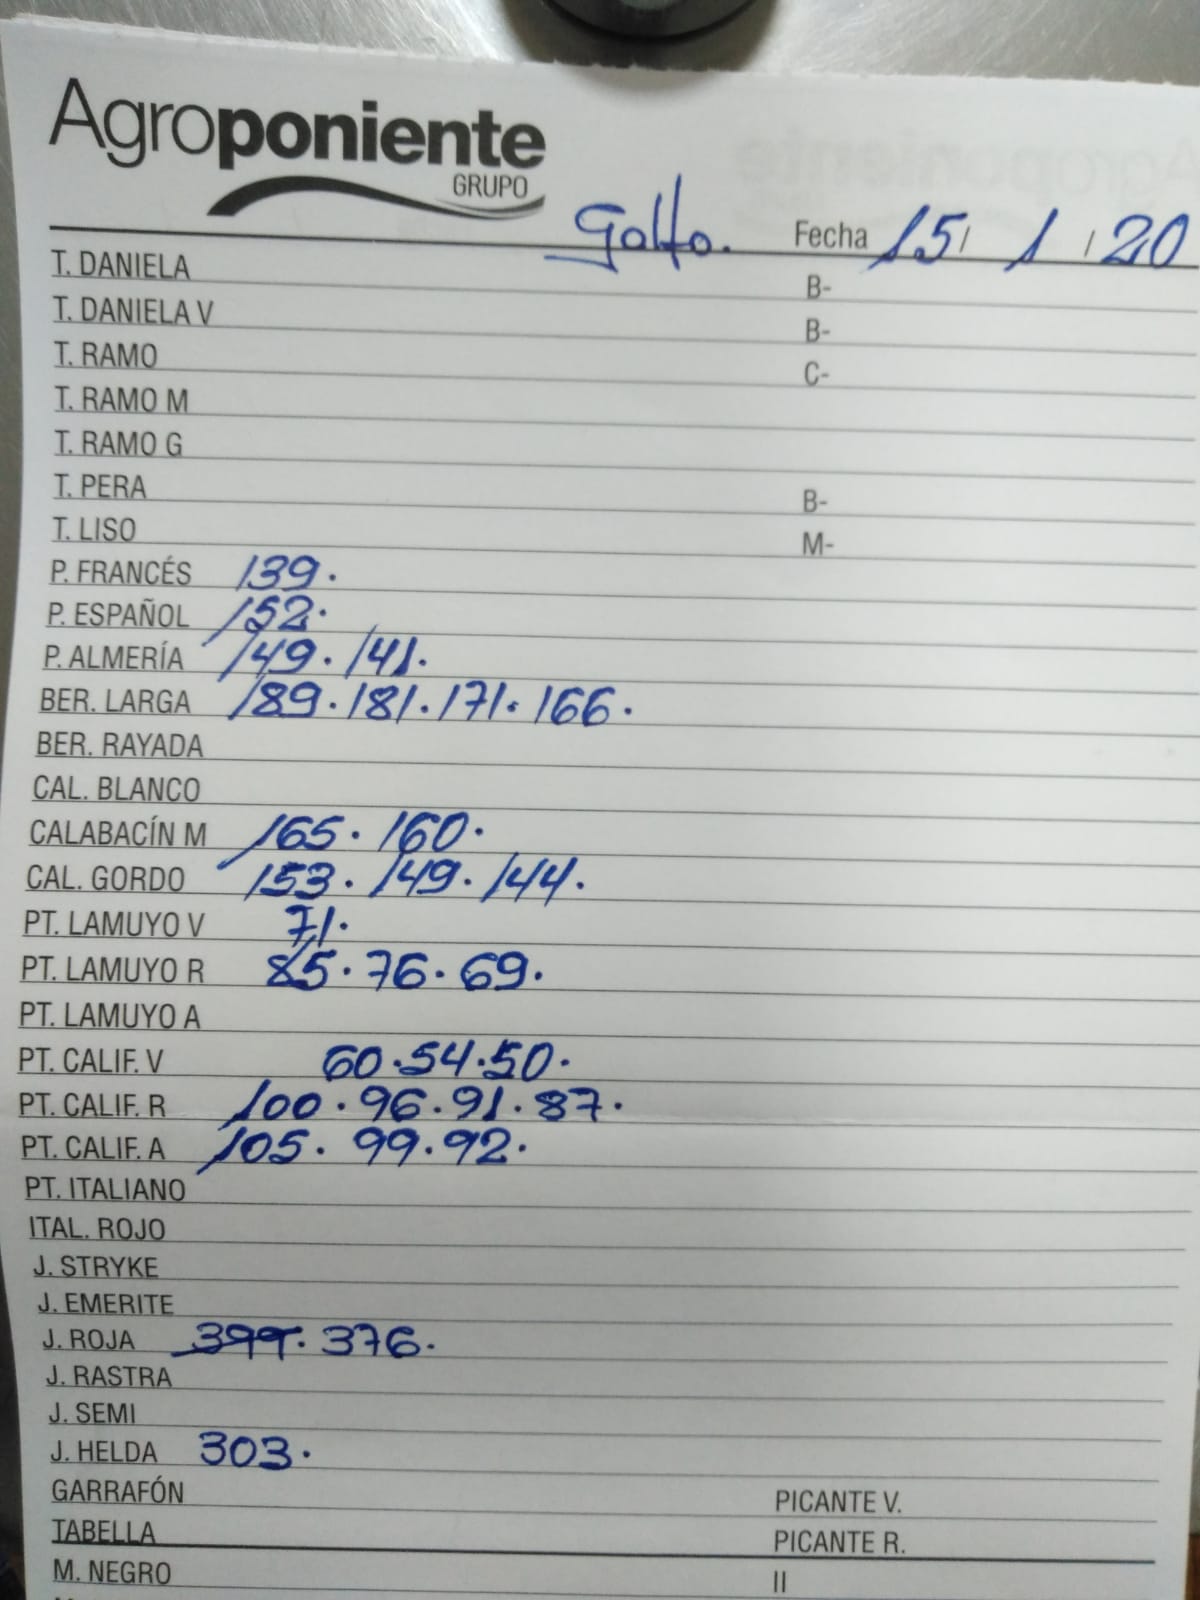 Agroponiente
GRUPO
Golfo. Fecha 15/ 1 /20
T. DANIELA B-
T. DANIELA V B-
T. RAMO C-
T. RAMO M
T. RAMO G
T. PERA B-
T. LISO M-
P. FRANCÉS 139.
P. ESPAÑOL 152.
P. ALMERÍA 149. 141.
BER. LARGA 189. 181. 171. 166.
BER. RAYADA
CAL. BLANCO
CALABACÍN M 165. 160.
CAL. GORDO 153. 149. 144.
PT. LAMUYO V 71.
PT. LAMUYO R 85. 76. 69.
PT. LAMUYO A
PT. CALIF. V 60. 54. 50.
PT. CALIF. R 100. 96. 91. 87.
PT. CALIF. A 105. 99. 92.
PT. ITALIANO
ITAL. ROJO
J. STRYKE
J. EMERITE
J. ROJA 376.
J. RASTRA
J. SEMI
J. HELDA 303.
GARRAFÓN PICANTE V.
TABELLA PICANTE R.
M. NEGRO II